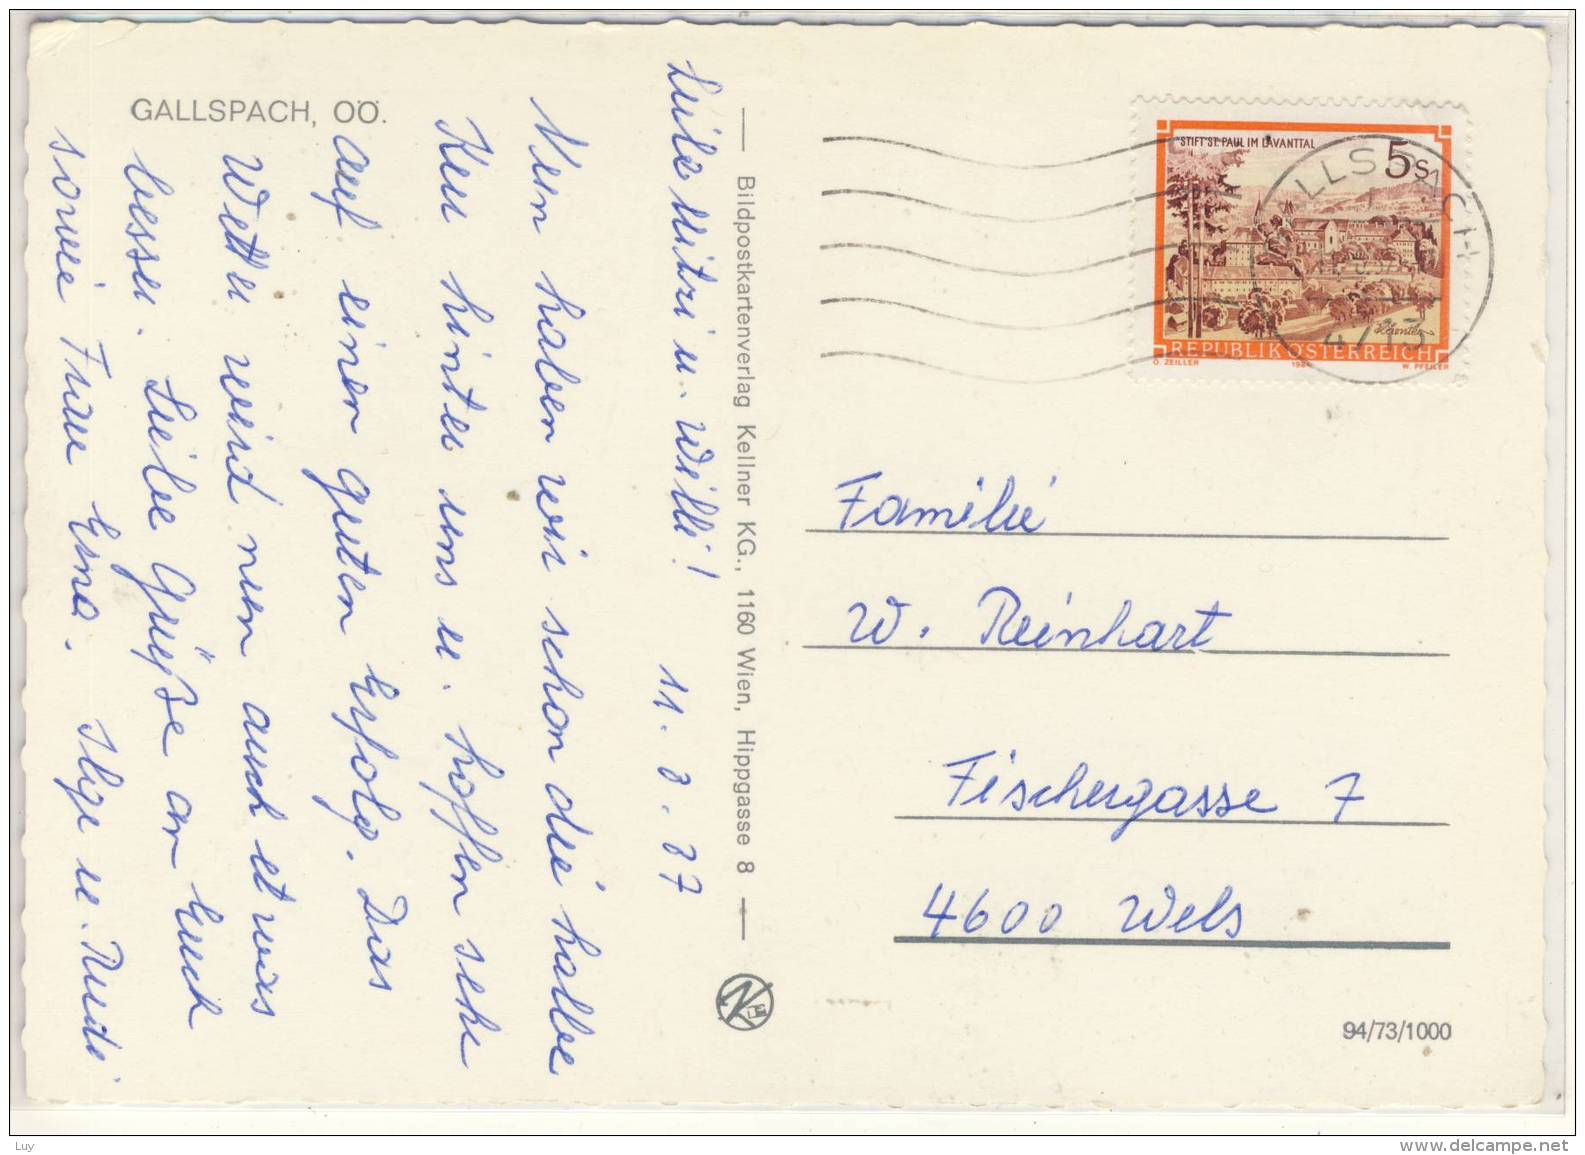 GALLSPACH, OÖ.
Liebe Mitzi u. Willi!
11.8.87
Nun haben wir schon die halbe
Kur hinter uns u. hoffen sehr
auf einen guten Erfolg. Das
Wetter wird nun auch etwas
besser. Liebe Grüße an Euch
sowie Frau Erna.
u. Rudi
Bildpostkartenverlag Kellner KG., 1160 Wien, Hippgasse 8
STIFT ST. PAUL IM LAVANTTAL
5 S
REPUBLIK ÖSTERREICH
O. ZEILLER 1984 W. PFEILER
Familie
W. Reinhart
Fischergasse 7
4600 Wels
94/73/1000
Luy
www.delcampe.net